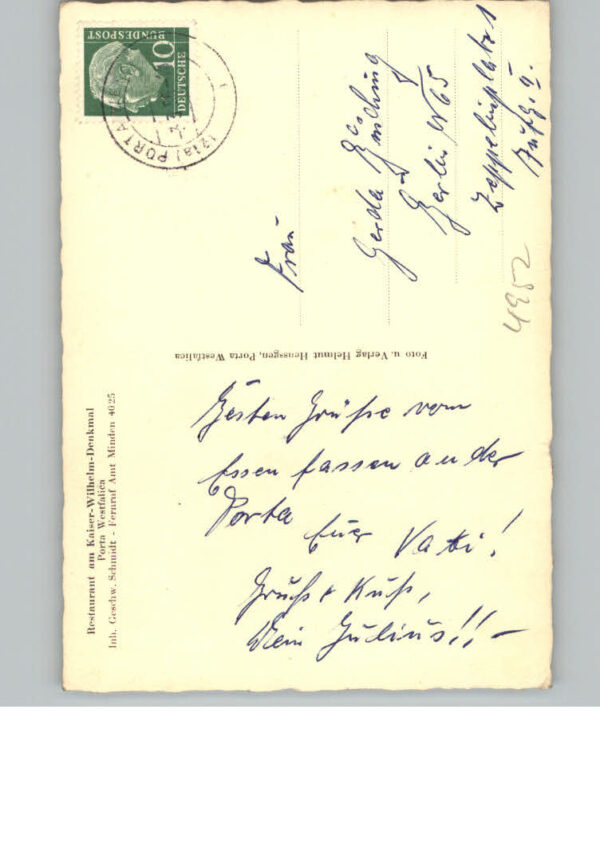 Restaurant am Kaiser-Wilhelm-Denkmal
Porta Westfalica
Inh. Geschw. Schmidt - Fernruf Amt Minden 4025
Besten Grüße vom
Essen fassen an der
Porta
Euer Vati!
Gruß + Kuß,
Dein Julius!! –
Foto u. Verlag Helmut Heussgen, Porta Westfalica
DEUTSCHE
BUNDESPOST
10
(21a) PORTA
Frau
Gerda
Berlin N 65
Zeppelinplatz 1
Aufg. II.
4952